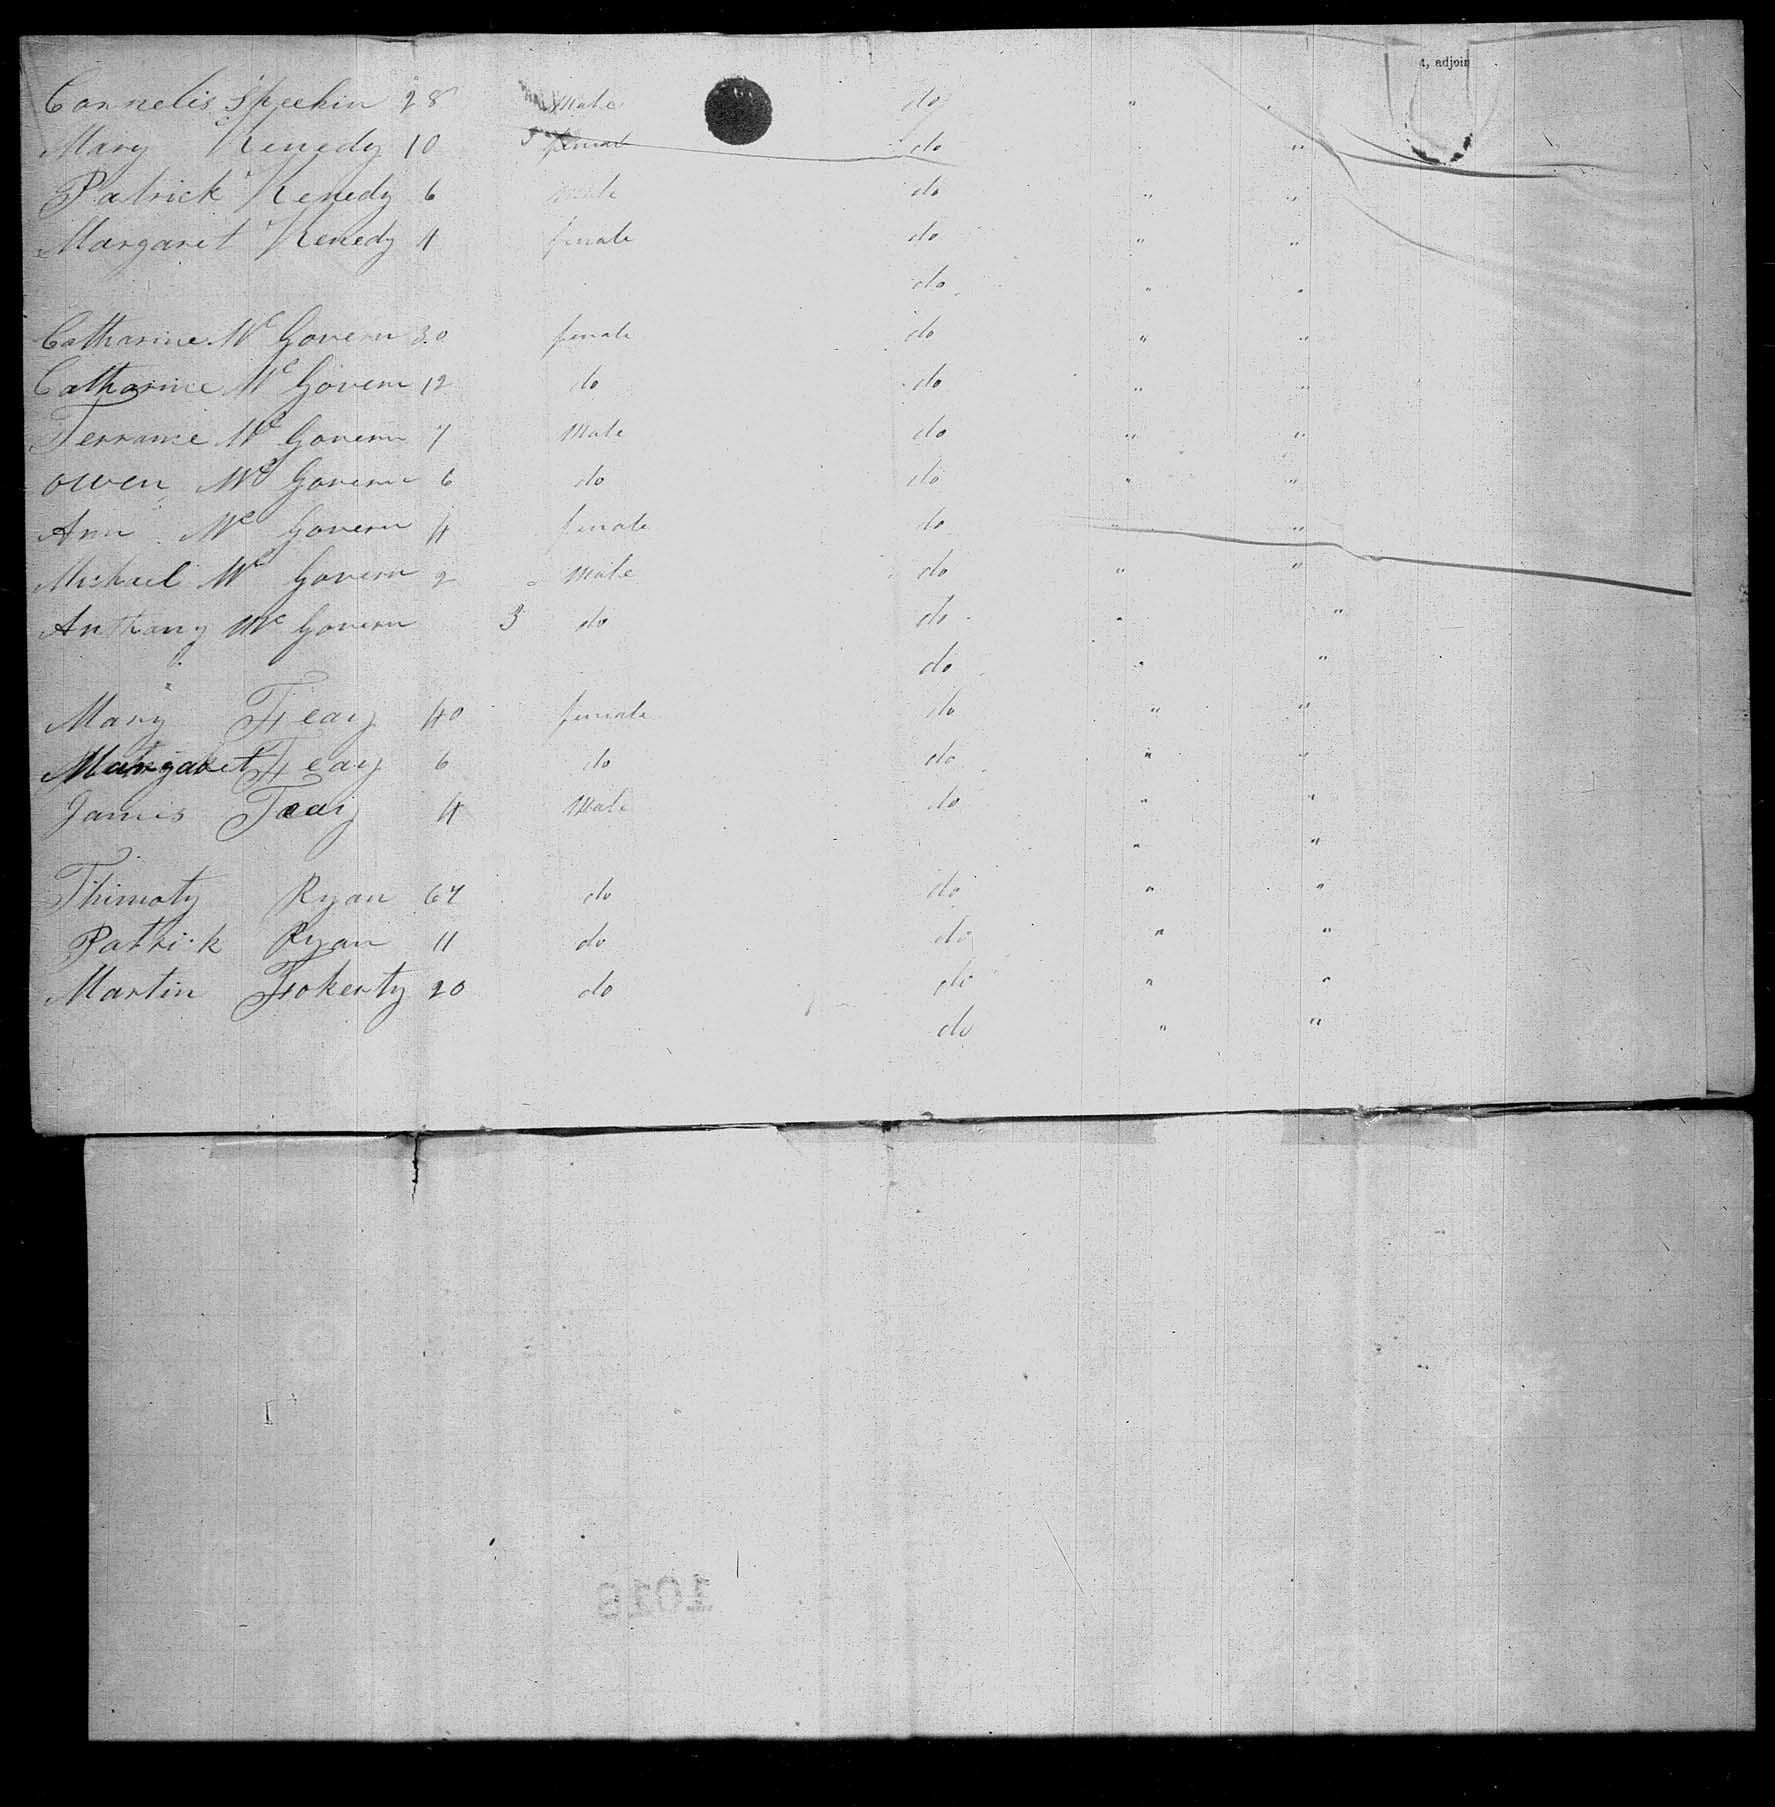 t, adjoin
Cornelis Speekin 28 Male do " "
Mary Kenedy 10 female do " "
Patrick Kenedy 6 Male do " "
Margaret Kenedy 4 female do " "
do " "
Catharine Mc Govern 30 female do " "
Catharine Mc Govern 12 do do " "
Terrance Mc Govern 7 Male do " "
Owen Mc Govern 6 do do " "
Ann Mc Govern 4 female do " "
Michael Mc Govern 2 Male do " "
Anthony Mc Govern 3 do do " "
do " "
Mary 40 female do " "
Margaret 6 do do " "
James 4 Male do " "
" "
Thimoty Ryan 67 do do " "
Patrick Ryan 11 do do " "
Martin 20 do do " "
do " "
1018